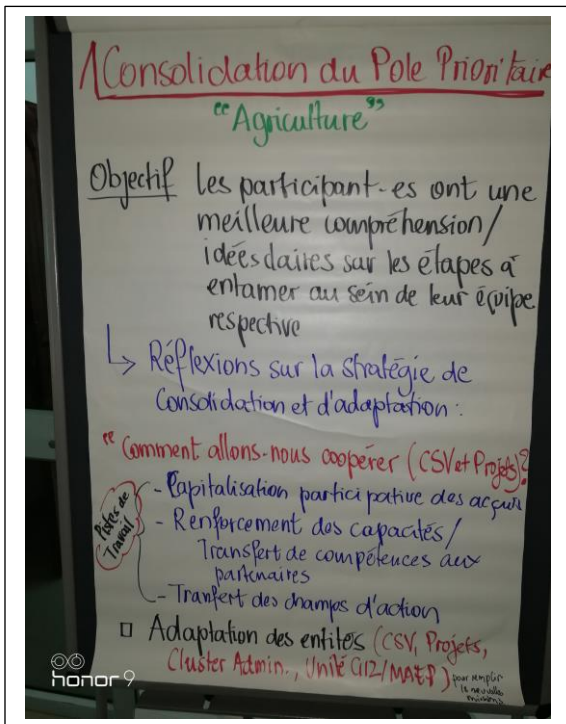 1 Consolidation du Pole Prioritaire
"Agriculture"
Objectif les participant-es ont une
meilleure compréhension/
idées claires sur les étapes à
entamer au sein de leur équipe
respective
↳ Réflexions sur la stratégie de
Consolidation et d'adaptation :
"Comment allons-nous coopérer (CSV et Projets)?
Pistes de
Travail
- Capitalisation participative des acquis
- Renforcement des capacités/
Transfert de compétences aux
partenaires
- Tranfert des champs d'action
□ Adaptation des entités (CSV, Projets,
Cluster Admin., Unité GIZ/MAEP)
pour remplir
les nouvelles
missions
honor 9